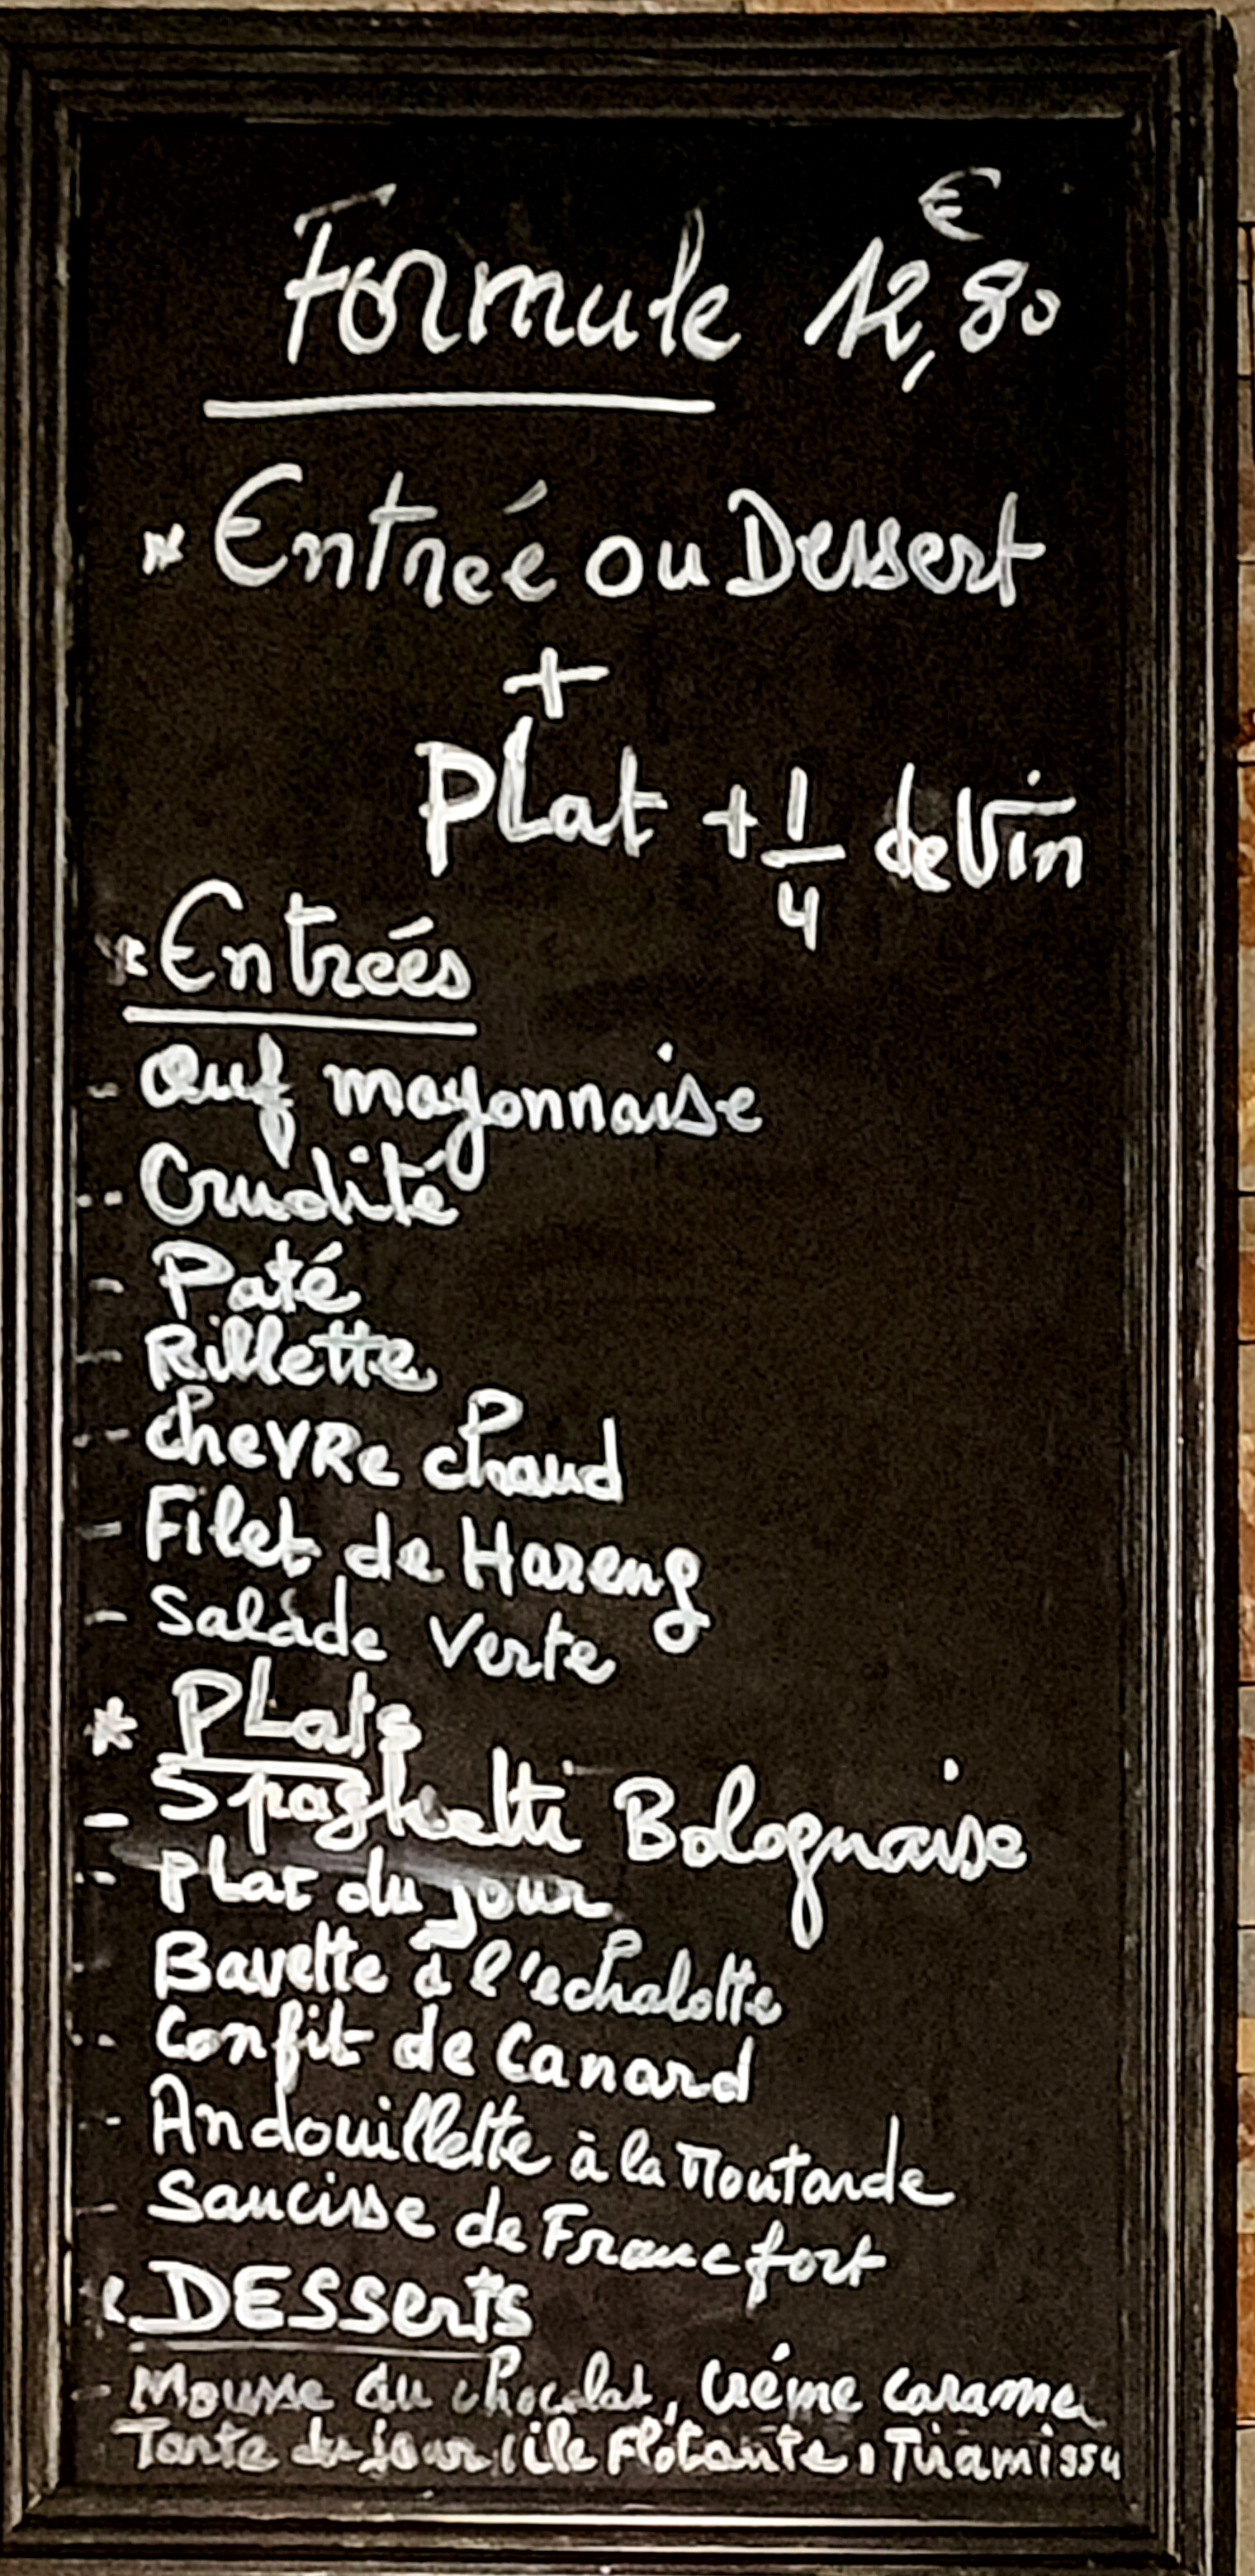 Formule 12,80 €
* Entrée ou Dessert
+
Plat + 1/4 de Vin
* Entrées
- Œuf mayonnaise
- Crudité
- Paté
- Rillette
- chevre chaud
- Filet de Hareng
- Salade Verte
* Plats
- Spaghetti Bolognaise
- Plat du jour
- Bavette à l'echalotte
- Confit de Canard
- Andouillette à la Moutarde
- Saucisse de Francfort
* DESSerts
- Mousse au chocolat, Créme caramel
Tarte du jour, ile Flotante, Tiramissu